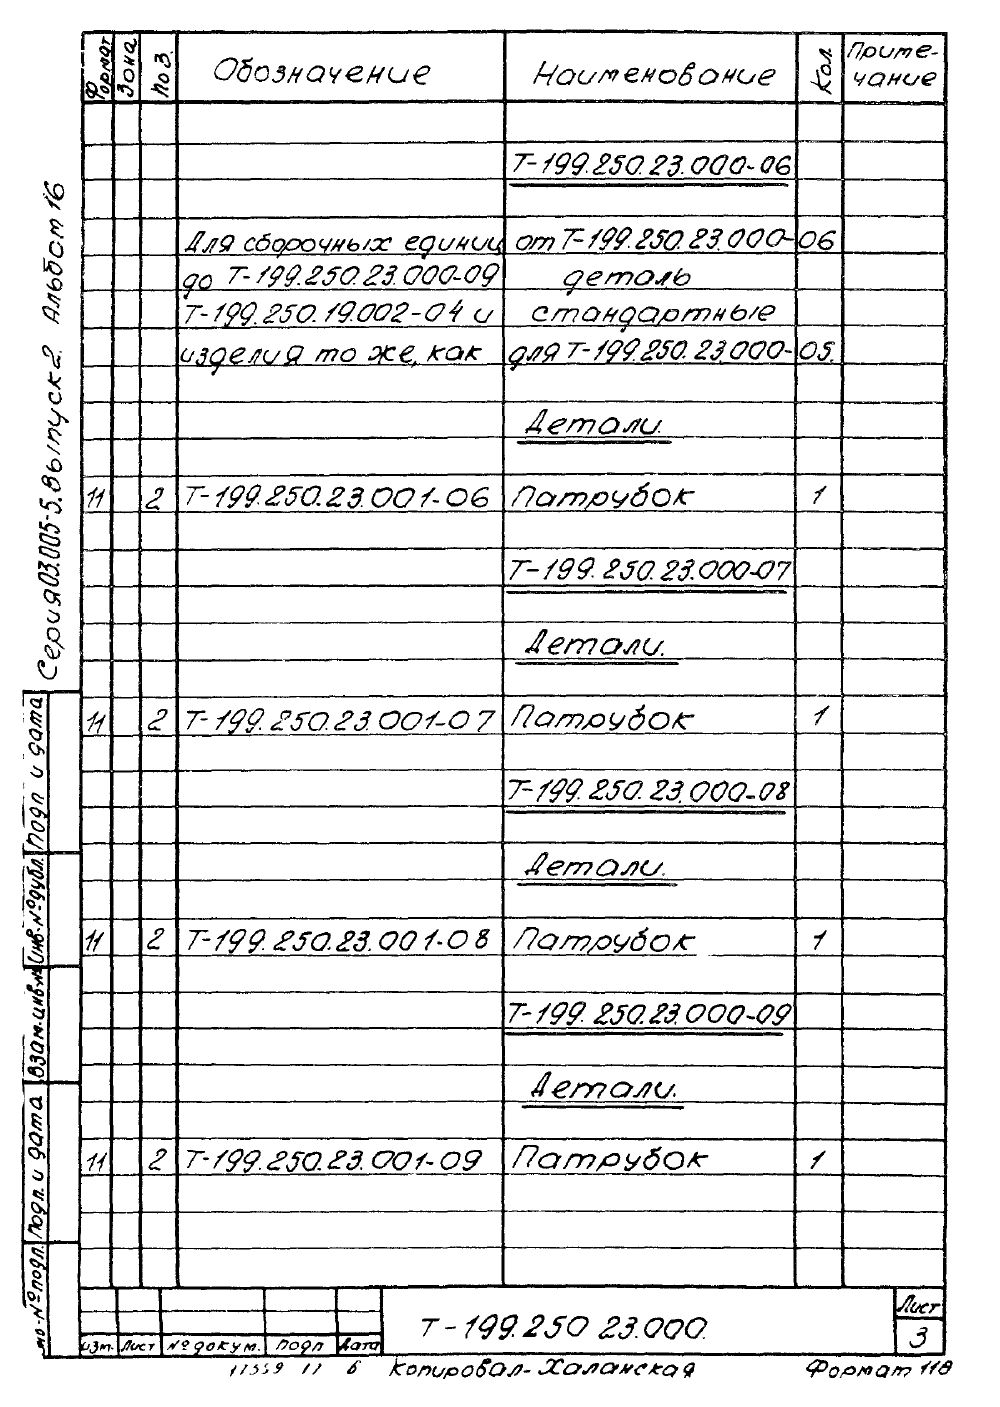 Формат Зона Поз. Обозначение Наименование Кол. Приме-
чание
Т-199.250.23.000-06
Для сборочных единиц от Т-199.250.23.000-06
до Т-199.250.23.000-09 деталь
Т-199.250.19.002-04 и стандартные
изделия то же, как для Т-199.250.23.000-05.
Детали.
11 2 Т-199.250.23.001-06 Патрубок 1
Т-199.250.23.000-07
Детали.
11 2 Т-199.250.23.001-07 Патрубок 1
Т-199.250.23.000-08
Детали.
11 2 Т-199.250.23.001-08 Патрубок 1
Т-199.250.23.000-09
Детали.
11 2 Т-199.250.23.001-09 Патрубок 1
Серия 03.005-5. Выпуск 2. Альбом 16
Подп. и дата
Инв. № дубл.
Взам. инв. №
Подп. и дата
№ подл.
Изм. Лист № докум. Подп Дата
Т-199.250 23.000.
Лист
3
Копировал- Халанская
Формат 11В